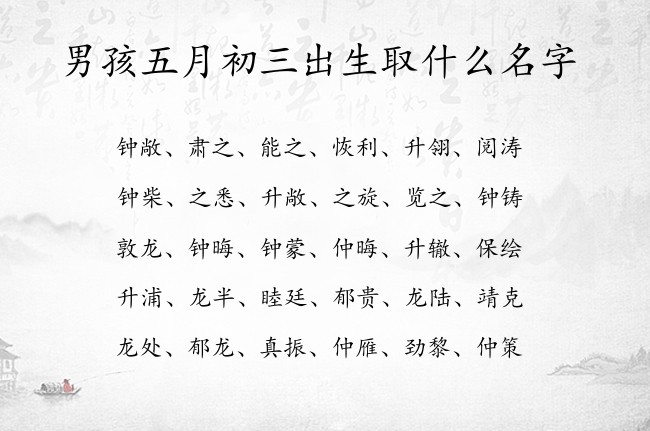 男孩五月初三出生取什么名字
钟敞、肃之、能之、恢利、升翎、阅涛
钟柴、之悉、升敞、之旋、览之、钟铸
敦龙、钟晦、钟蒙、仲晦、升辙、保绘
升浦、龙半、睦廷、郁贵、龙陆、靖克
龙处、郁龙、真振、仲雁、劲黎、仲策